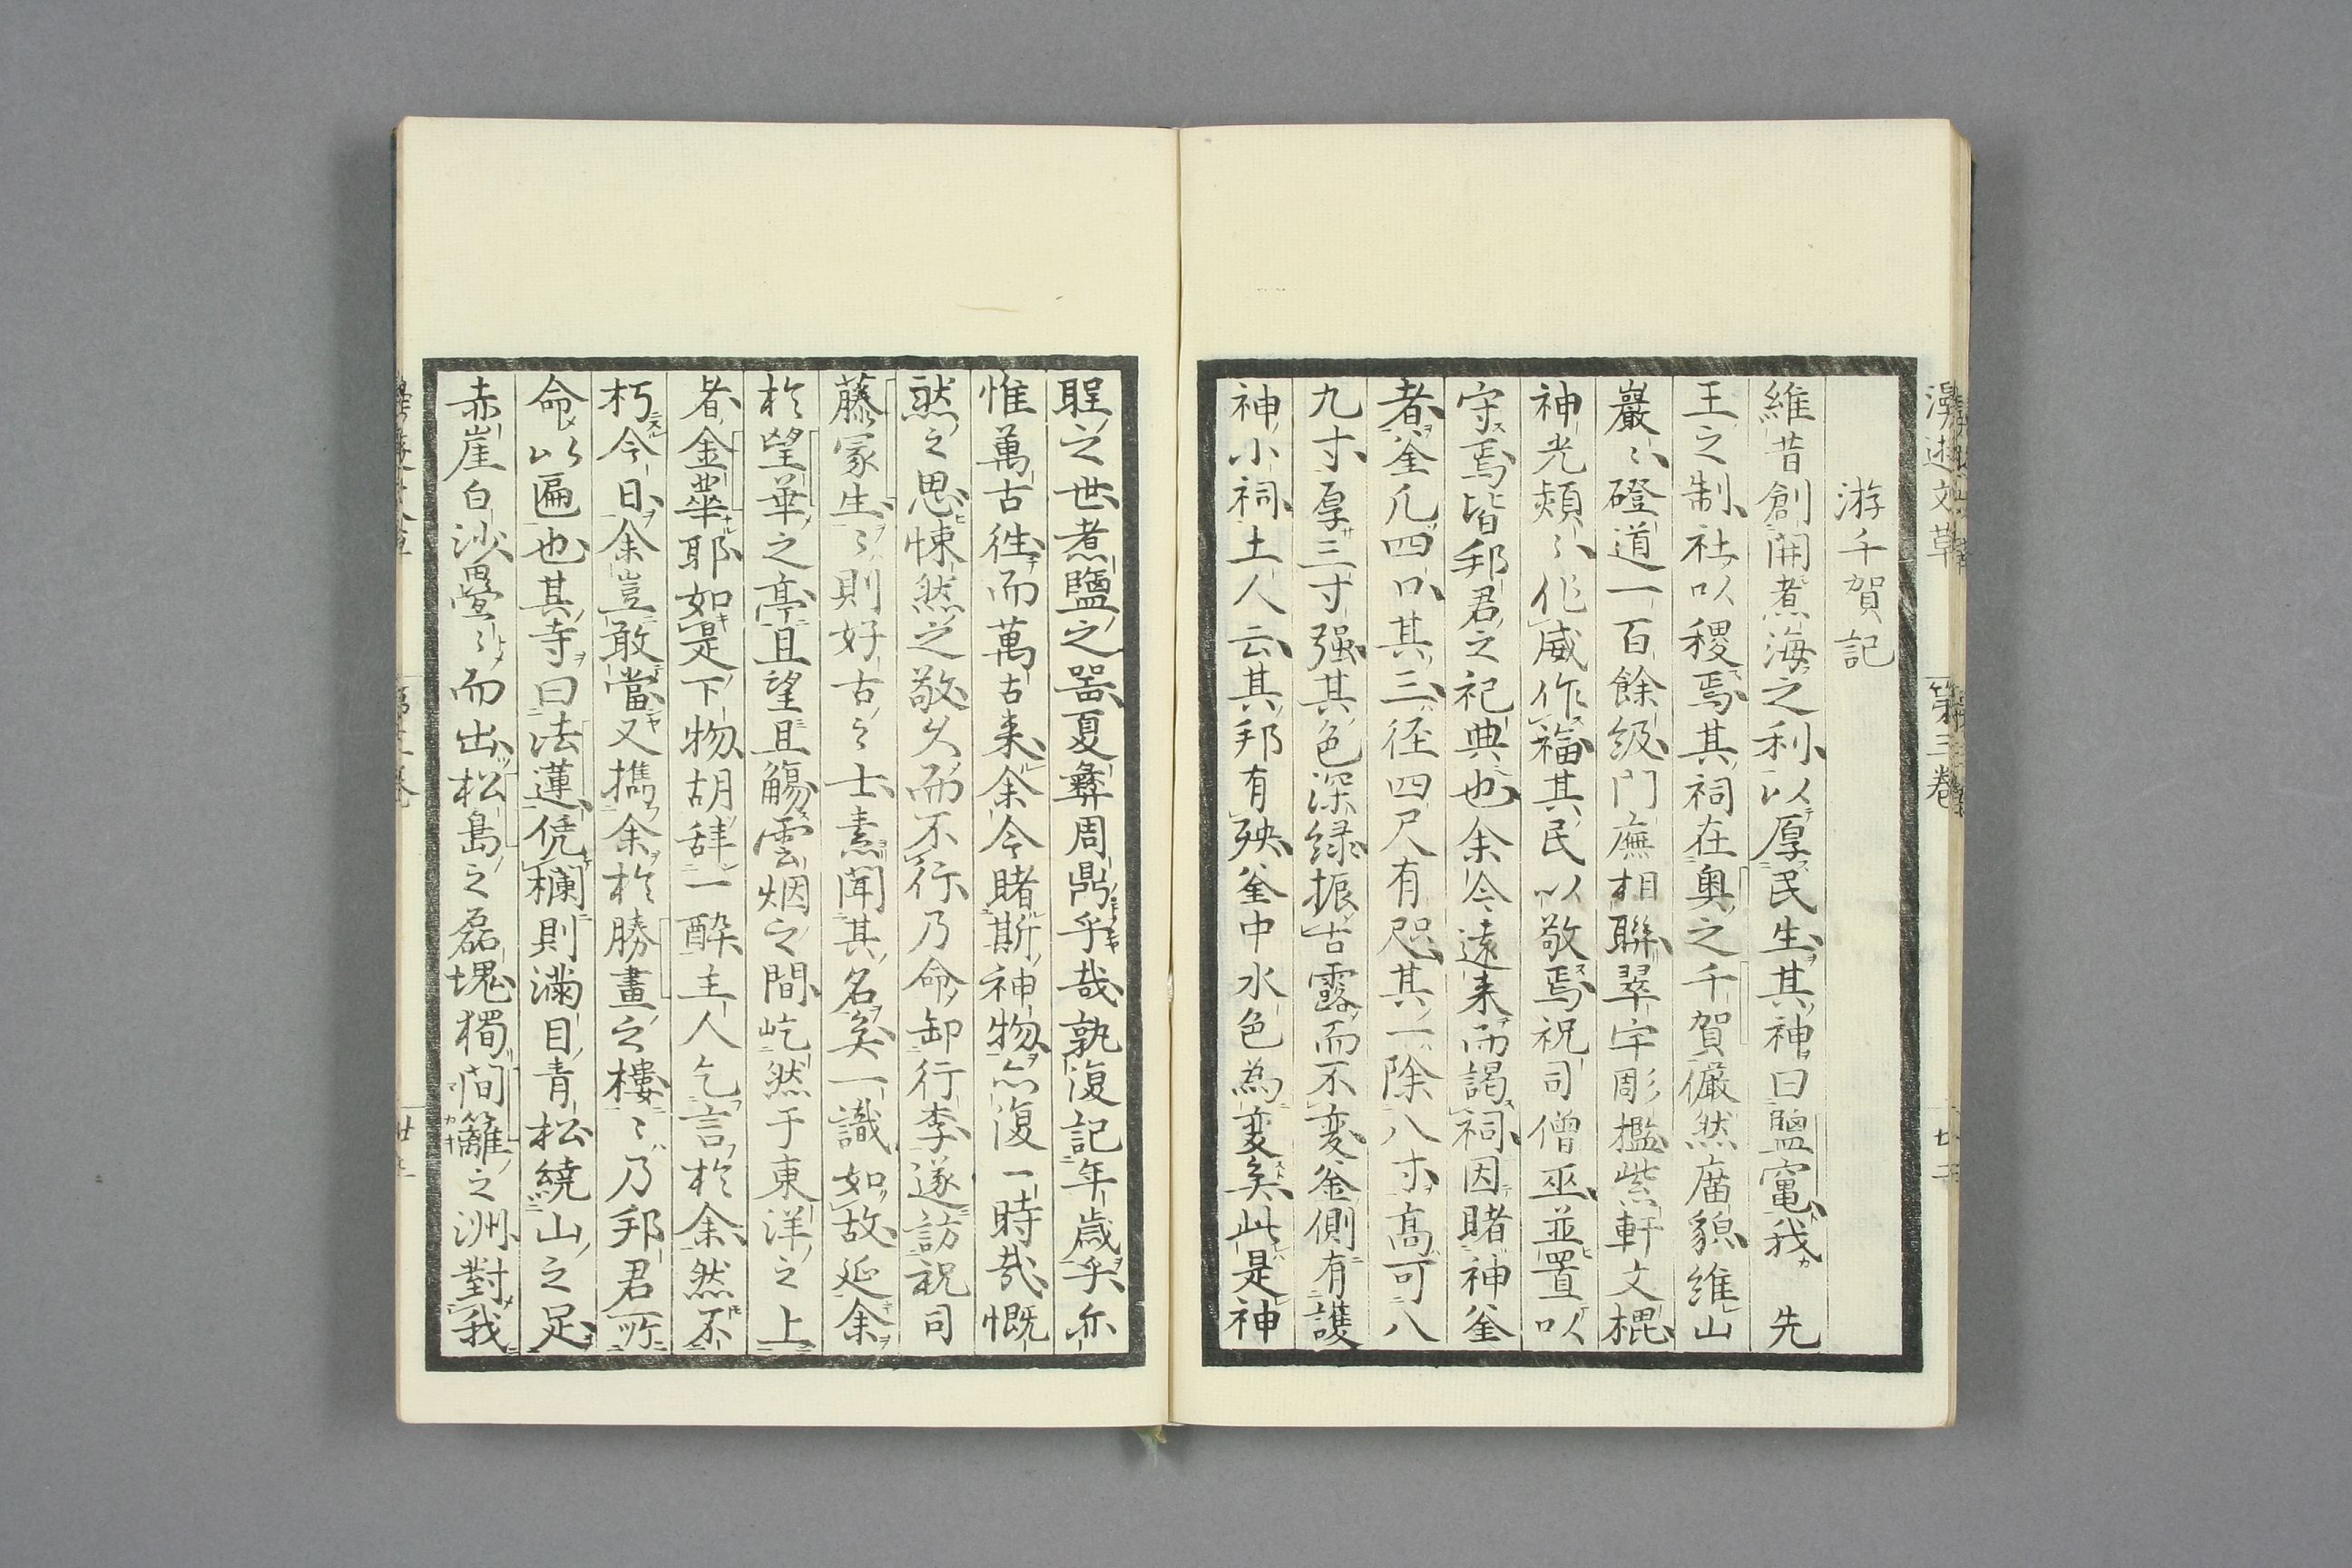 游千賀記
維昔創開煮海之利以厚民生其神曰鹽竈我　先
王之制社以稷焉其祠在奥之千賀儼然廟貌維山
巖〻磴道一百餘級門廡相聯翠宇彫檻紫軒文榥
神光熲〻作威作福其民以敬焉祝司僧巫並置以
守焉皆邦君之祀典也余今遠来而謁祠因睹神釜
者釜凢四口其三径四尺有咫其一除八寸高可八
九寸厚三寸强其色深緑振古露而不変釜側有護
神小祠土人云其邦有殃釜中水色為変矣此是神
聖之世煮鹽之噐夏彝周鼎乎哉孰復記年歳乎亦
惟萬古徃而萬古来余今睹斯神物亦復一時哉慨
然之思悚然之敬久而不行乃命卸行李遂訪祝司
藤冢生〻則好古之士素聞其名矣一識如故延余
於望華之亭且望且觴雲烟之間屹然于東洋之上
者金華耶如是下物胡辞一酔主人乞言於余然不
朽今日余豈敢當又攜余於勝畫之樓〻乃邦君所
命以匾也其寺曰法蓮凭欄則滿目青松繞山之足
赤崖白沙疊〻而出松島之磊塊獨間籬之洲對我
第三巻